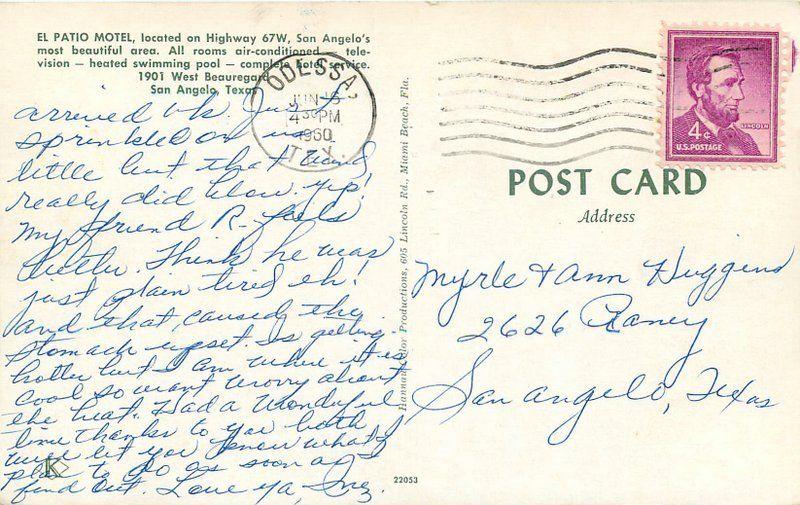 EL PATIO MOTEL, located on Highway 67W, San Angelo's
most beautiful area. All rooms air-conditioned — tele-
vision — heated swimming pool — complete hotel service.
1901 West Beauregard
San Angelo, Texas
arrived ok. Just
sprinkled on us
little but that wind
really did blow up!
My friend R- feels
better. Think he was
just plain tired eh!
and that, caused the
stomach upset. Is getting
hotter but I am where it is
cool so wont worry about
the heat. Had a wonderful
time thanks to you both
will let you know what I
plan to do as soon as
find out. Love ya, Inez.
K
ODESSA,
JUN 6
4 30 PM
1960
TEX.
Hannau Color Productions, 605 Lincoln Rd., Miami Beach, Fla.
22053
4¢
LINCOLN
U.S. POSTAGE
POST CARD
Address
Myrle & Ann Huggins
2626 Raney
San Angelo, Texas